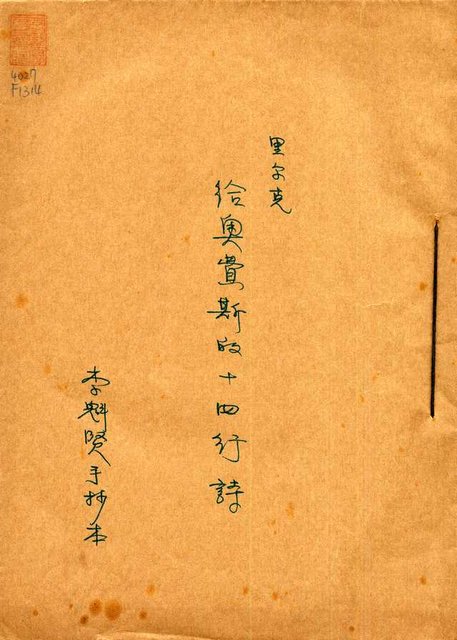 4027
F1314
里尔克
給奧費斯的十四行詩
李魁賢手抄本